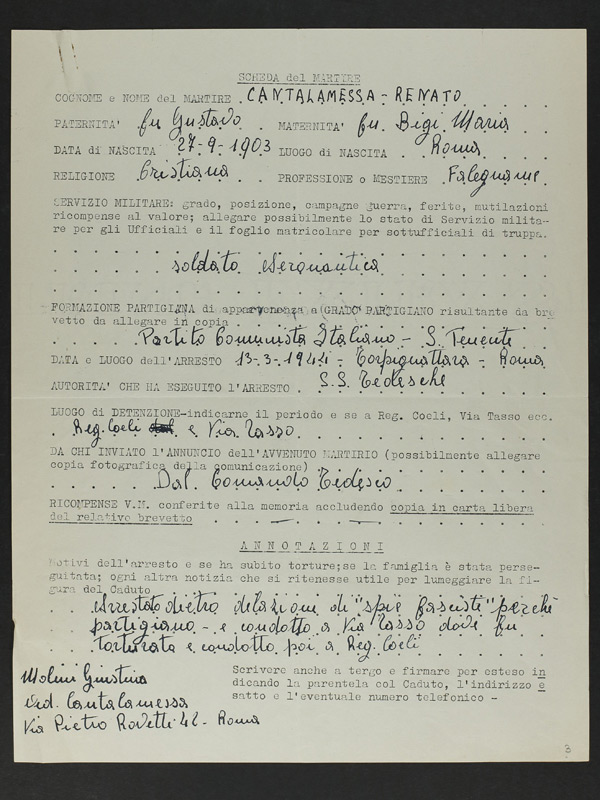 SCHEDA del MARTIRE
COGNOME e NOME del MARTIRE . CANTALAMESSA - RENATO
PATERNITA' fu Gustavo . . MATERNITA' fu. Bigi Maria
DATA di NASCITA 27-9-1903 LUOGO di NASCITA . Roma
RELIGIONE Cristiana PROFESSIONE o MESTIERE Falegname
SERVIZIO MILITARE: grado, posizione, campagne guerra, ferite, mutilazioni
ricompense al valore; allegare possibilmente lo stato di Servizio milita-
re per gli Ufficiali e il foglio matricolare per sottufficiali di truppa.
soldato Aeronautica
FORMAZIONE PARTIGIANA di appartenenza a (GRADO PARTIGIANO risultante da bre
vetto da allegare in copia
Partito Comunista Italiano - S. Tenente
DATA e LUOGO dell'ARRESTO 13-3-1944 - Torpignattara - Roma
AUTORITA' CHE HA ESEGUITO l'ARRESTO . S.S. Tedesche
LUOGO di DETENZIONE-indicarne il periodo e se a Reg. Coeli, Via Tasso ecc.
Reg. Coeli e Via Tasso
DA CHI INVIATO l'ANNUNCIO dell'AVVENUTO MARTIRIO (possibilmente allegare
copia fotografica della comunicazione)
Dal Comando Tedesco
RICOMPENSE V.M. conferite alla memoria accludendo copia in carta libera
del relativo brevetto
ANNOTAZIONI
Motivi dell'arresto e se ha subito torture;se la famiglia è stata perse-
guitata; ogni altra notizia che si ritenesse utile per lumeggiare la fi-
gura del Caduto
Arrestato dietro delazioni di "spie fasciste" perchè
partigiano - e condotto a Via Tasso dove fu
torturato e condotto poi a Reg. Coeli
Molini Giustina
ved. Cantalamessa
Via Pietro Rovetti 42 - Roma
Scrivere anche a tergo e firmare per esteso in
dicando la parentela col Caduto, l'indirizzo e
satto e l'eventuale numero telefonico -
3